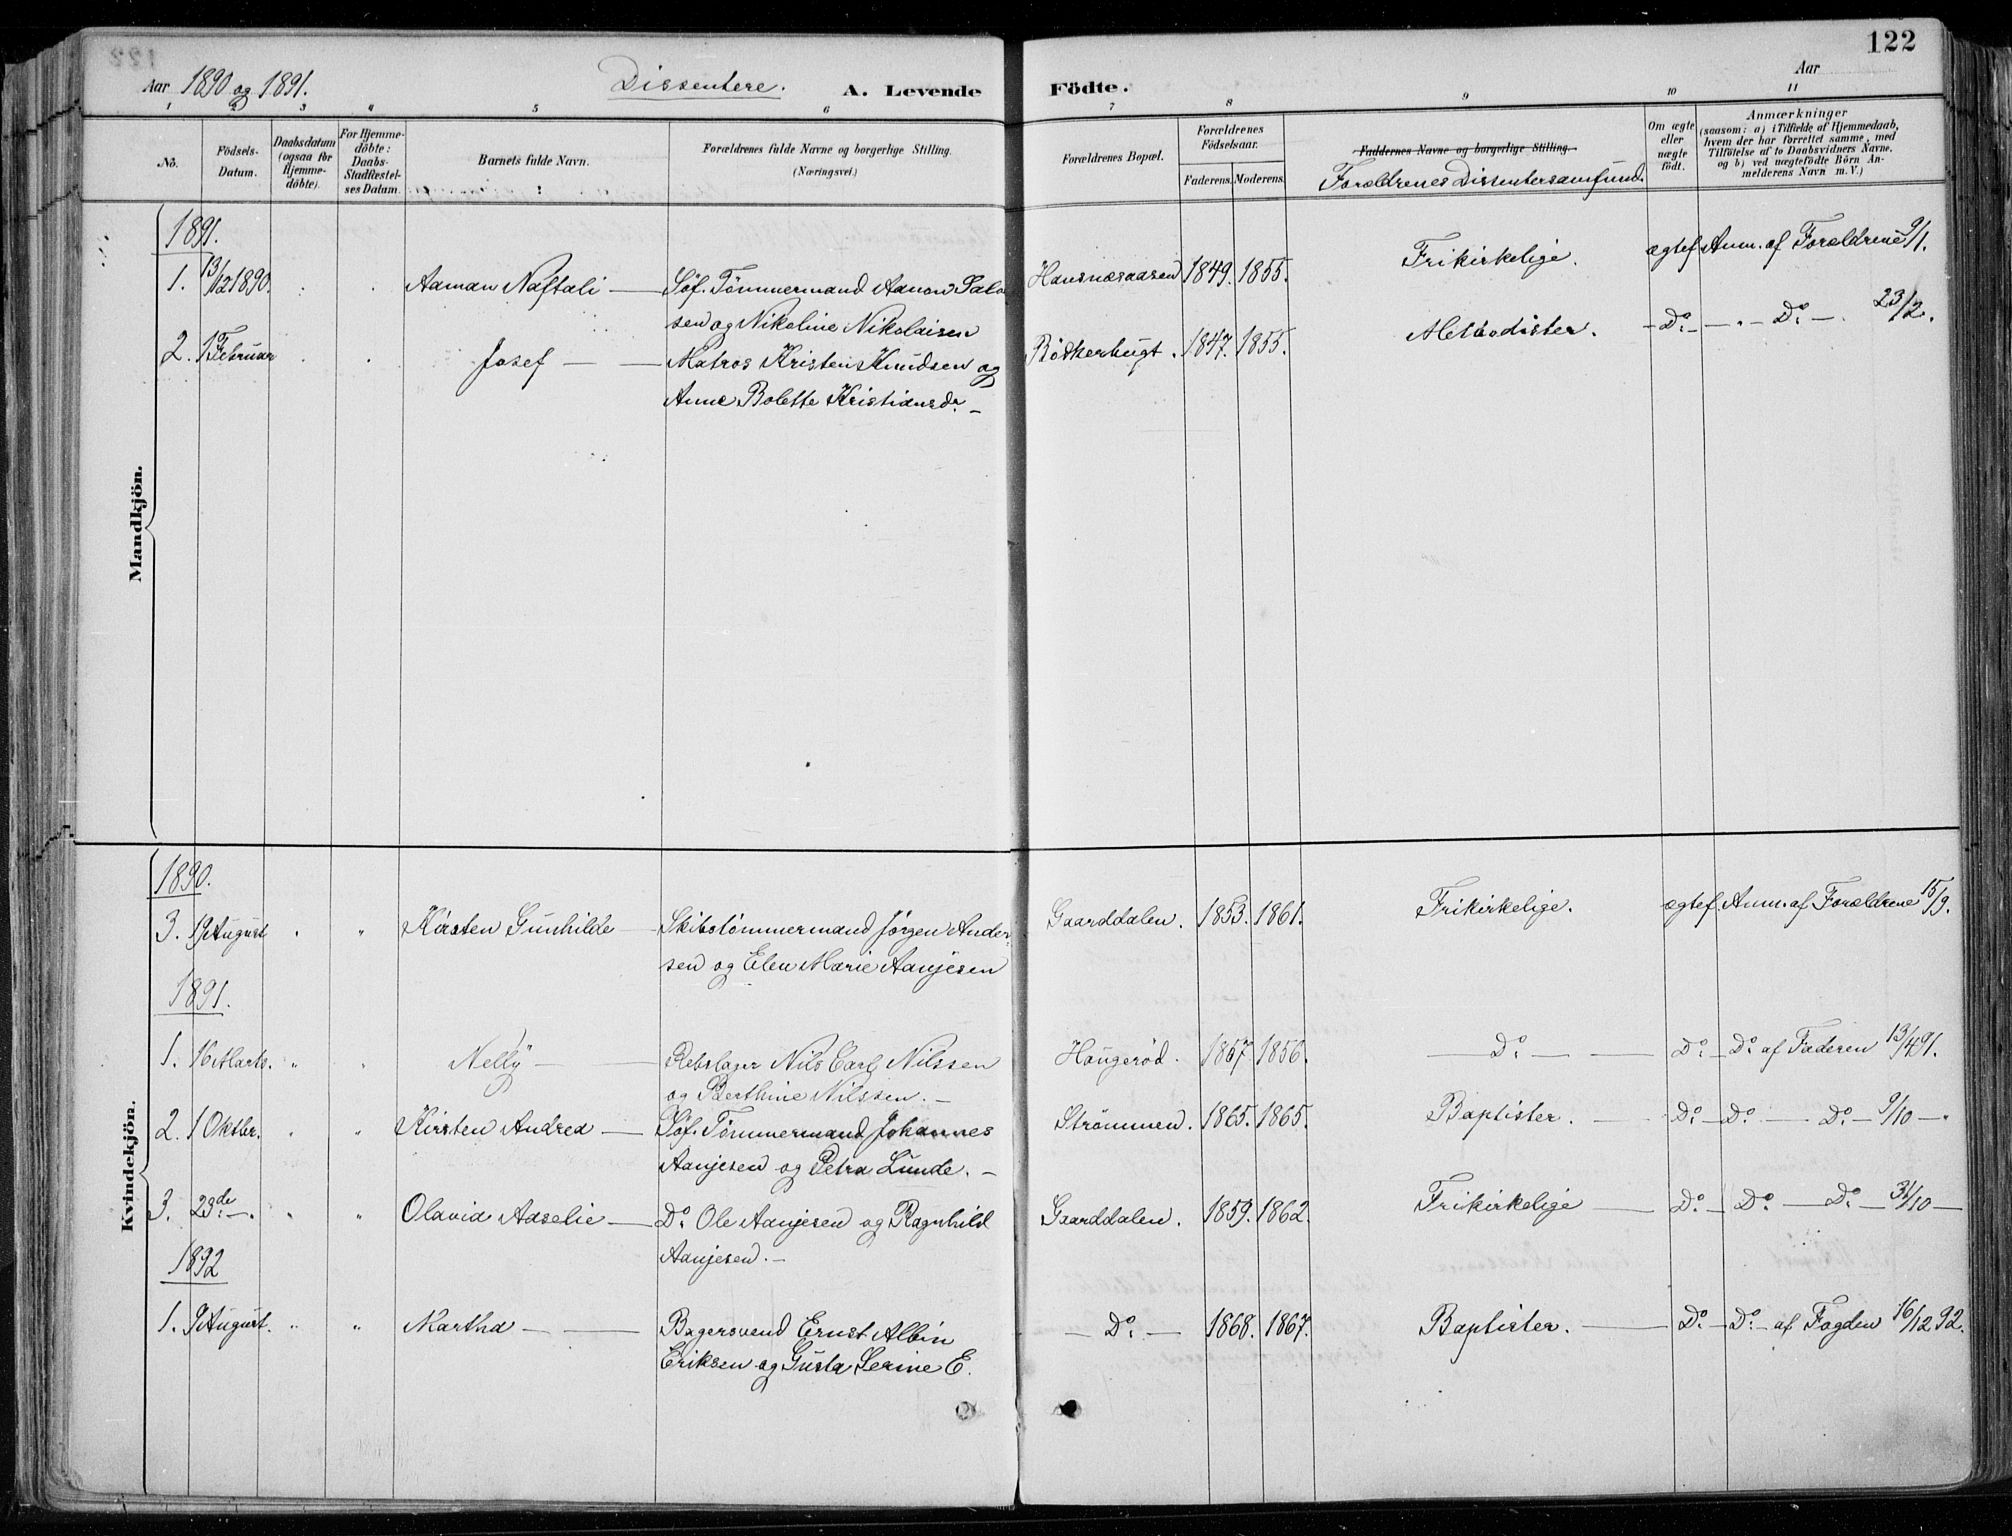 122
Aar 1890 og 1891. Dissentere. A. Levende Födte. Aar
1 2 3 " 5 6 7 8 9 10 11
No. Födsels-Datum. Daabsdatum (ogsaa for Hjemmedöbte). For Hjemmedöbte: Daabs-Stadfæstelses Datum. Barnets fulde Navn. Forældrenes fulde Navne og borgerlige Stilling. (Næringsvei.) Forældrenes Bopæl. Forældrenes Födselsaar. Faderens. Moderens. Faddernes Navne og borgerlige Stilling. Forældrenes Dissentersamfund. Om ægte eller uægte födt. Anmærkninger (saasom: a) i Tilfælde af Hjemmedaab, hvem der har forrettet samme, med Tilföielse af to Daabsvidners Navne, og b) ved uægtefödte Börn Anmelderens Navn m.V.)
Mandkjön.
1891.
1. 13/12 1890. Aaman Naftali — Söf. Tømmermand Aanon Salo Hansnæsaasen 1849. 1855. Frikirkelige. ægtef. Anm. af Forældrene 9/1.
sen og Nikoline Nikolaisen
2. 1 Februar Josef — Matros Kristen Knudsen og Rödkerbugt. 1847. 1855. Methodister. — Do. — " — Do. — 23/2.
Anne Bolette Kristiansdr. —
Kvindekjön.
1890.
3. 19 August " Kirsten Gunhilde — Skibstömmermand Jörgen Ander Gaarddalen. 1853. 1861. Frikirkelige. ægtef. Anm. af Forældrene 15/9.
sen og Elen Marie Aanjesen
1891.
1. 16 Marts. " " Nelly — Rebslager Nils Carl Nilssen Haugeröd. 1867. 1856. — Do. — Do. — Do. af Faderen 13/4 91.
og Berthine Nilssen. —
2. 1 Oktbr. " " Kirsten Andrea — Söf. Tömmermand Johannes Strömmen. 1865. 1865. Baptister. — Do. — Do. — Do. — 9/10 —
Aanjesen og Petra Lunde. —
3. 23de —. " " Olavid Adselie — Do. Ole Aanjesen og Ragnhild Gaarddalen. 1859. 1862. Frikirkelige — Do. — Do. — Do. — 31/10 —
Aanjesen. —
1892
1. 9 August. " " Martha — Bagersvend Ernst Albin — Do. — 1868. 1867. Baptister. — Do. — Do. — af Fogden 16/12 92.
Eriksen og Gusta Serine E.